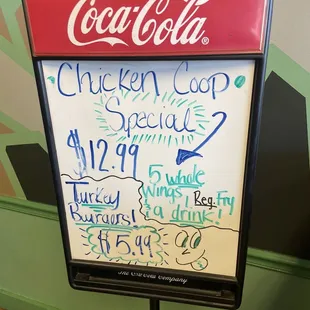 Coca-Cola®
Chicken Coop
Special
$12.99
5 whole
wings Reg. Fry
& a drink!
Turkey
Burgers!
$5.99
The Coca-Cola Company